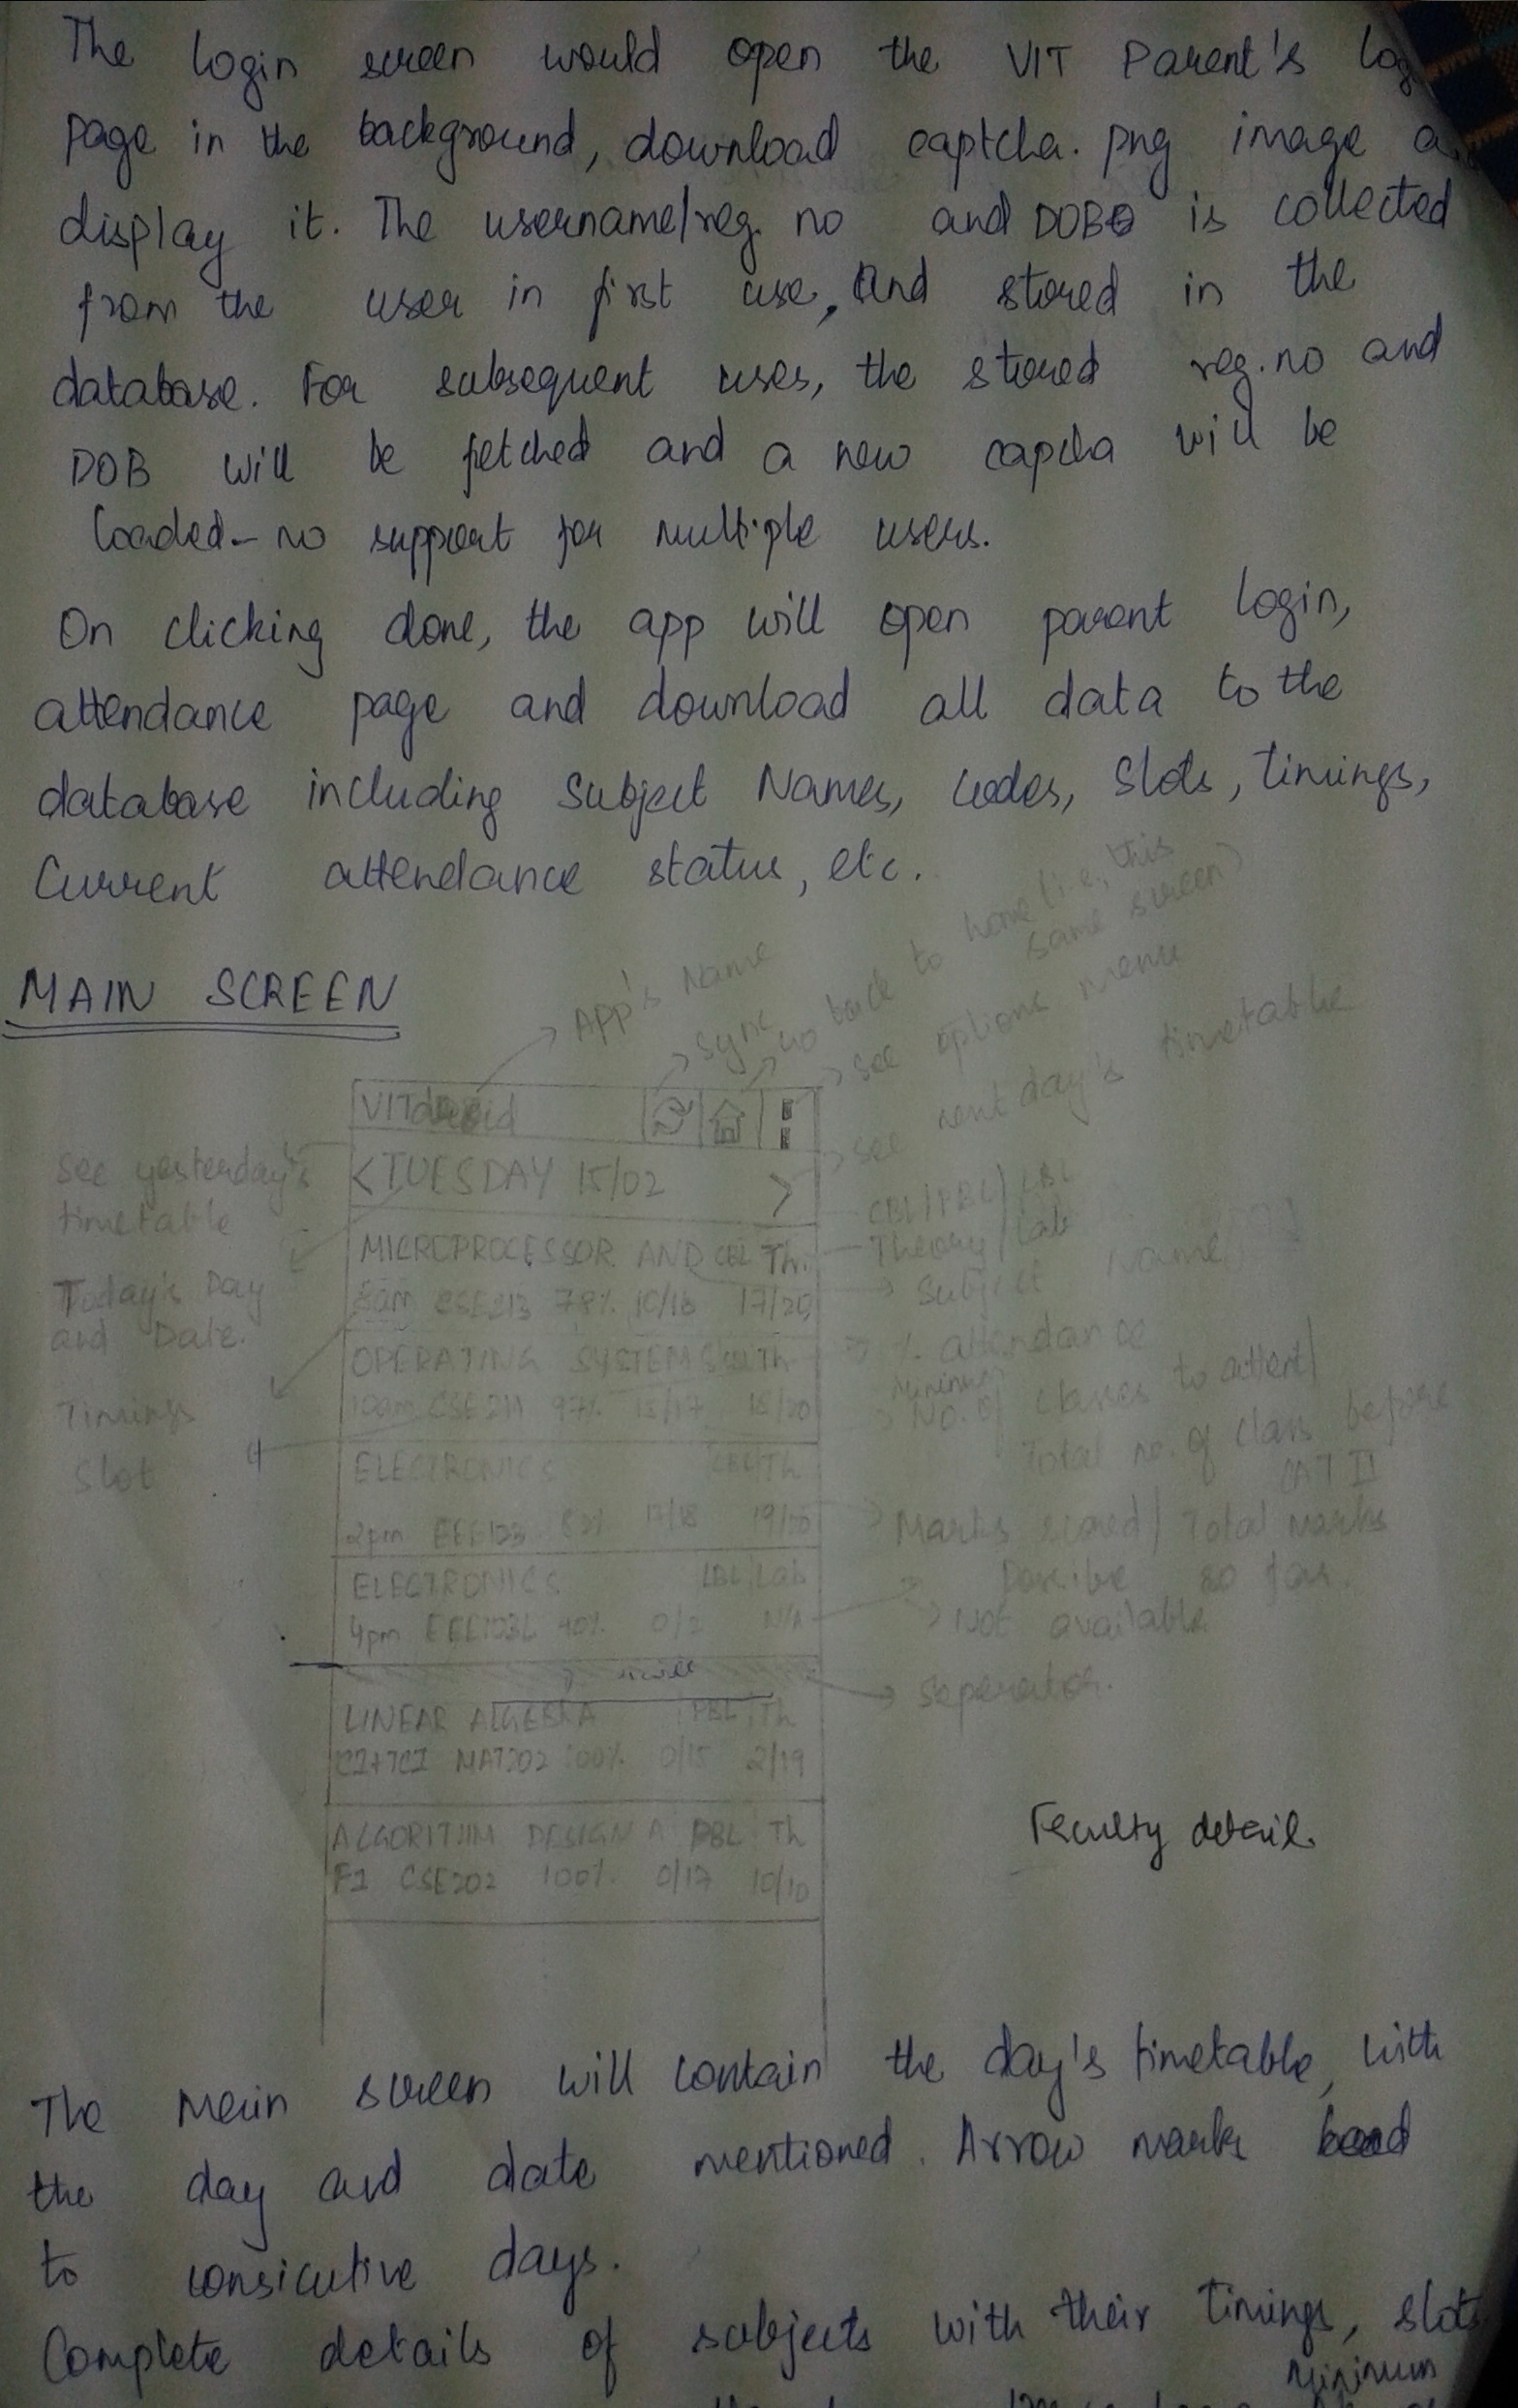 The login screen would open the VIT Parent's
page in the background, download captcha.png image
display it. The username/reg. no and DOB is collected
from the user in first use, and stored in the
database. For subsequent uses, the stored reg.no and
DOB will be fetched and a new capcha will be
loaded - no support for multiple users.
On clicking done, the app will open parent login,
attendance page and download all data to the
database including Subject Names, codes, Slots, timings,
Current attendance status, etc.
MAIN SCREEN
App's Name
Sync
Go back to home (i.e., this
same screen)
see options menu
see next day's timetable
VITdroid
< TUESDAY 15/02 >
see yesterday's
timetable
Today's Day
and Date.
Timings
Slot
MICROPROCESSOR AND CBL Th.
8am CSE213 78% 10/18 17/20
OPERATING SYSTEMS CBL Th
10am CSE211 97% 15/17 18/20
ELECTRONICS CBL Th
2pm EEE123 82% 17/18 19/20
ELECTRONICS LBL Lab
4pm EEE123L 90% 0/2 N/A
LINEAR ALGEBRA PBL Th
C1+TC1 MAT202 100% 0/15 2/19
ALGORITHM DESIGN A PBL Th
F1 CSE202 100% 0/17 10/10
CBL/PBL/LBL
Theory/Lab
Subject Name
% attendance
Minimum
No. of classes to attent/
Total no. of class before
CAT II
Marks scored/Total marks
Possible so far.
Not available
Seperator.
Faculty detail.
The Main screen will contain the day's timetable, with
the day and date mentioned. Arrow marks
to consicutive days.
Complete details of subjects with their timings, slots
Minimum